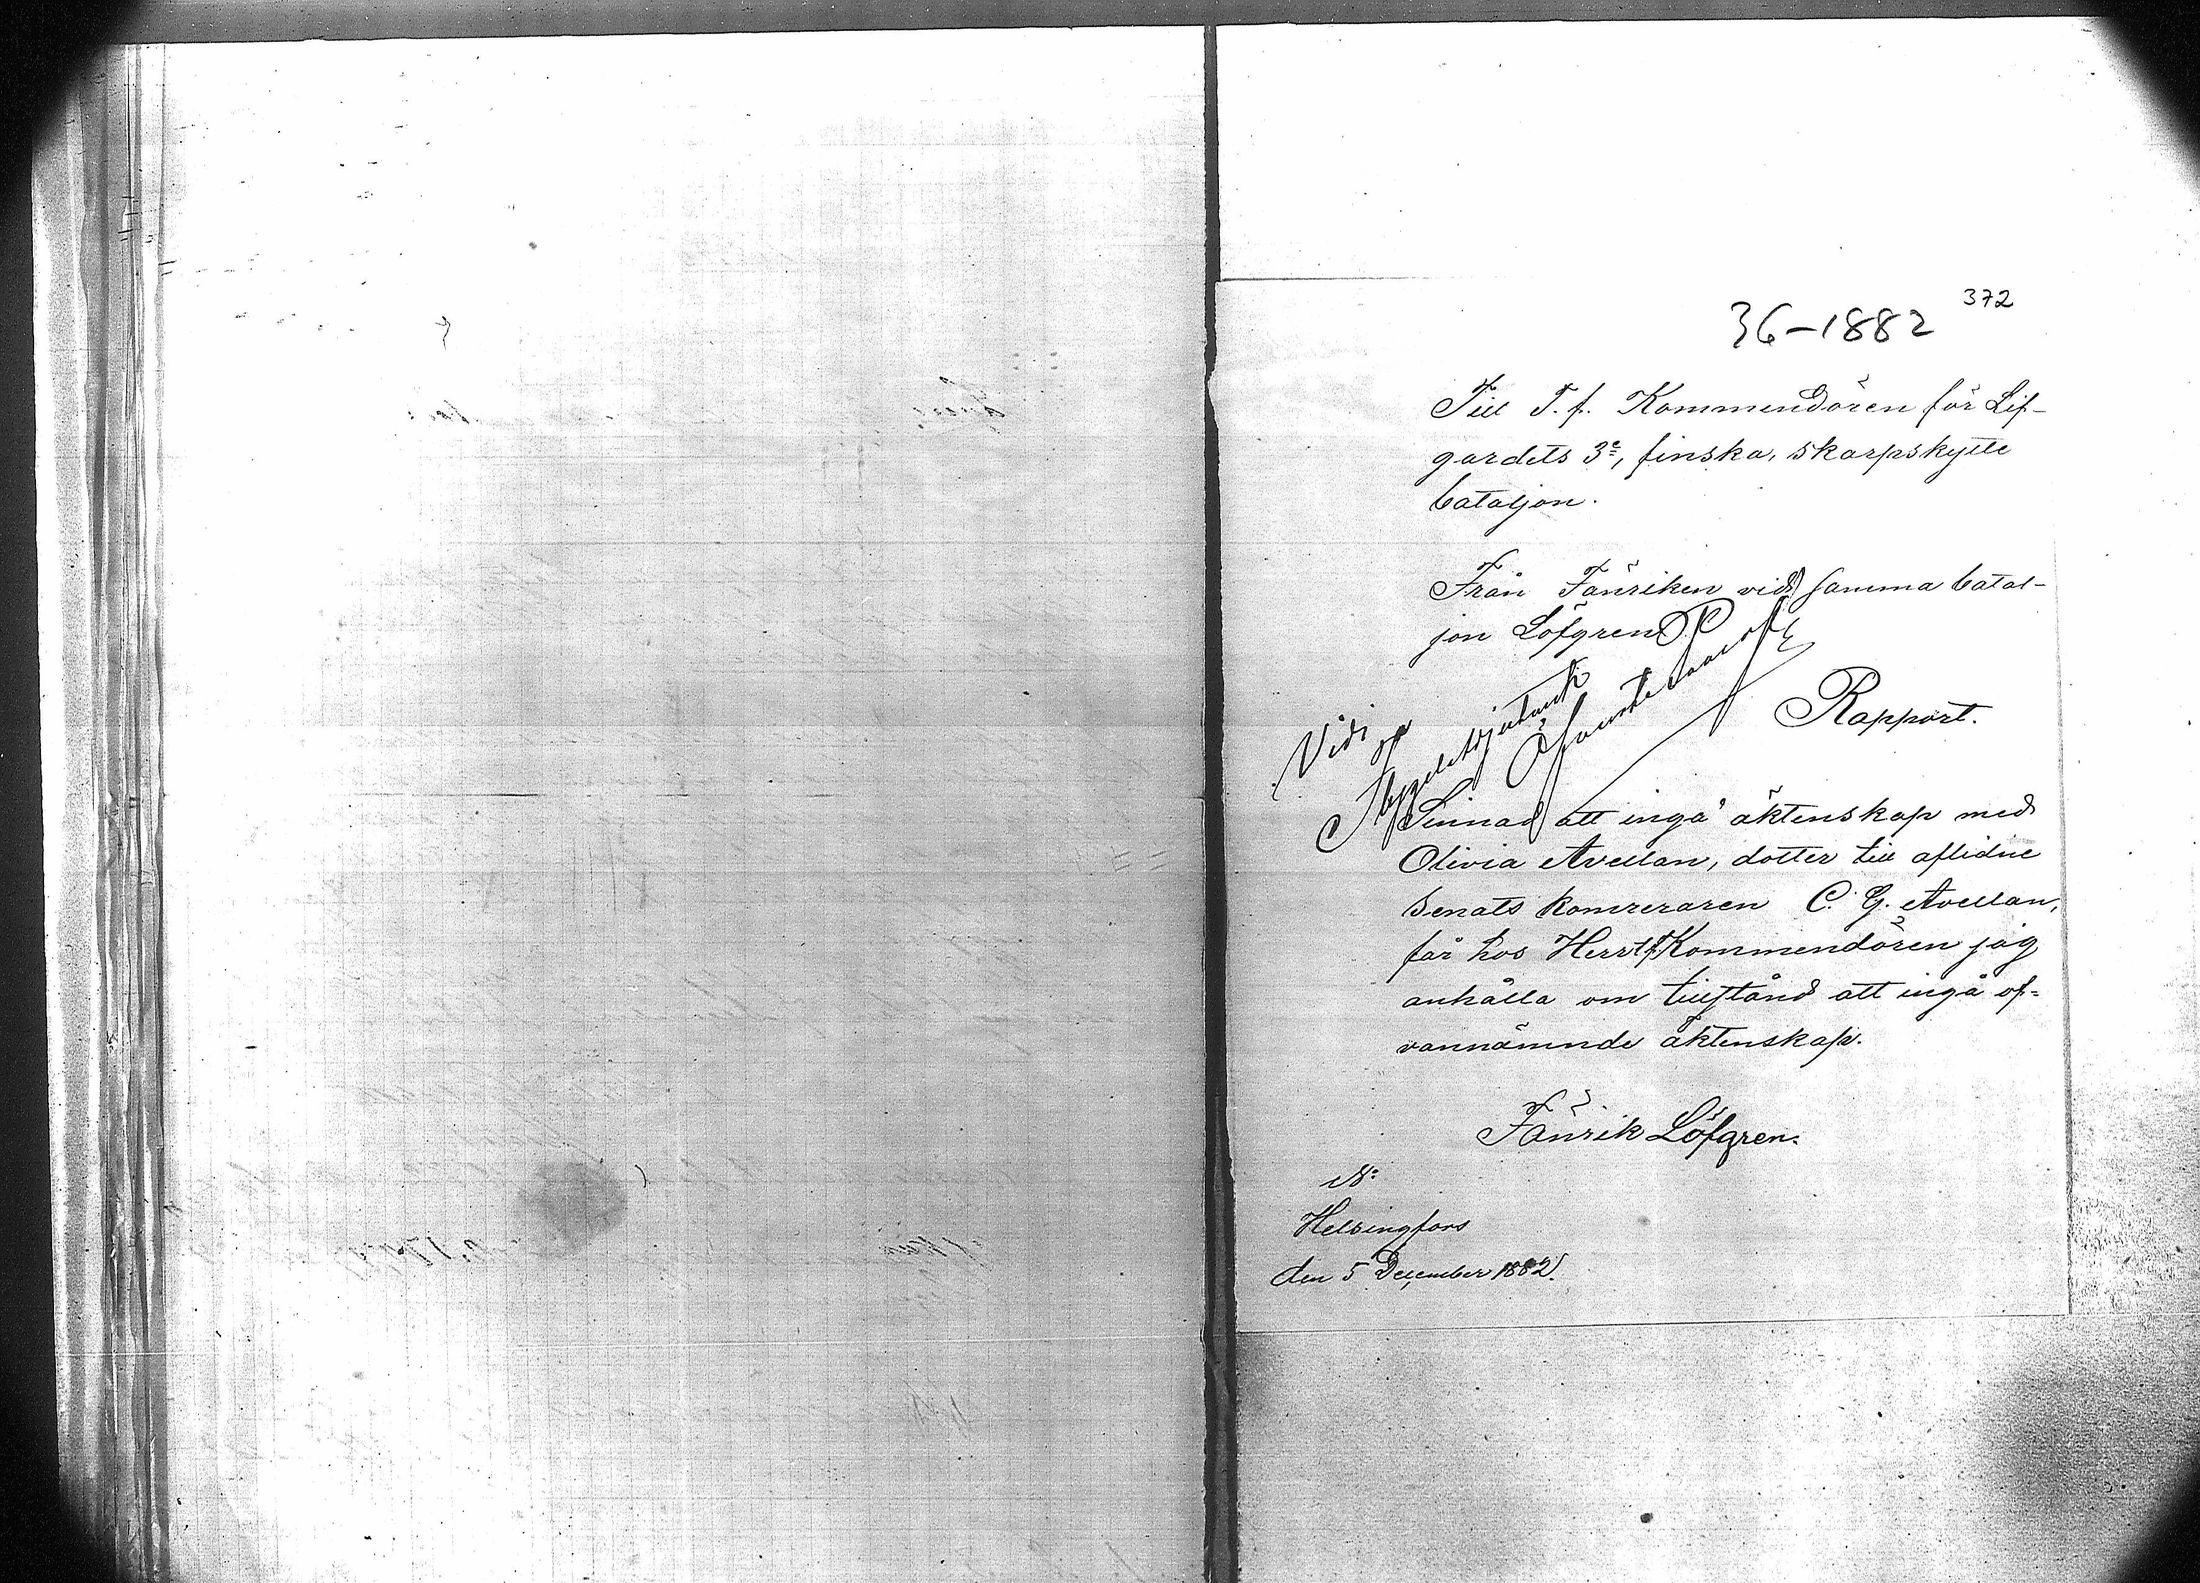 36-1882 372
Till T. f. Kommendören för Lif-
gardets 3e, finska, skarpskytte
bataljon.
Från Fänriken vid samma batal-
jon Löfgren
Rapport.
Vidi
Sinnad att ingå äktenskap med
Olivia Avellan, dotter till aflidne
Senats kamreraren C. G. Avellan,
får hos Herr t.f. Kommendören jag
anhålla om tillstånd att ingå of-
vannämnde äktenskap.
Fänrik Löfgren.
No:
Helsingfors
den 5 December 1882.